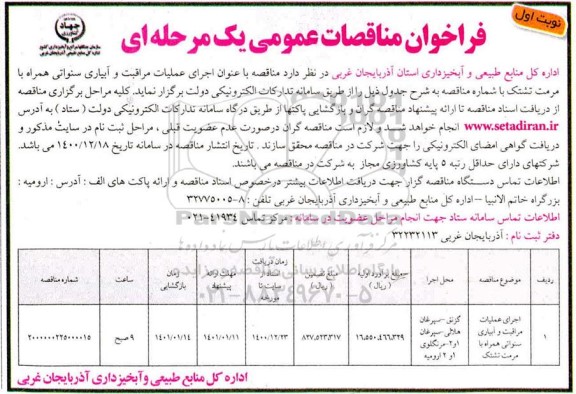 نوبت اول
جهاد
فراخوان مناقصات عمومی یک مرحله ای
اداره کل منابع طبیعی و آبخیزداری استان آذربایجان غربی در نظر دارد مناقصه با عنوان اجرای عملیات مراقبت و آبیاری سنواتی همراه با
مرمت تشتک با شماره مناقصه به شرح جدول ذیل را از طریق سامانه تدارکات الکترونیکی دولت برگزار نماید. کلیه مراحل برگزاری مناقصه
از دریافت اسناد مناقصه تا ارائه پیشنهاد مناقصه گران و بازگشایی پاکتها از طریق درگاه سامانه تدارکات الکترونیکی دولت ( ستاد ) به آدرس
www.setadiran.ir انجام خواهد شد و لازم است مناقصه گران درصورت عدم عضویت قبلی ، مراحل ثبت نام در سایت مذکور و
دریافت گواهی امضای الکترونیکی را جهت شرکت در مناقصه محقق سازند . تاریخ انتشار مناقصه در سامانه تاریخ ۱۴۰۰/۱۲/۱۸ می باشد.
شرکتهای دارای حداقل رتبه ۵ پایه کشاورزی مجاز به شرکت در مناقصه می باشند.
اطلاعات تماس دستگاه مناقصه گزار جهت دریافت اطلاعات بیشتر درخصوص اسناد مناقصه و ارائه پاکت های الف : آدرس : ارومیه :
بزرگراه خاتم الانبیا – اداره کل منابع طبیعی و آبخیزداری آذربایجان غربی تلفن : ۸-۳۲۷۷۵۰۰۵
اطلاعات تماس سامانه ستاد جهت انجام مراحل عضویت در سامانه : مرکز تماس ۴۱۹۳۴-۰۲۱
دفتر ثبت نام : آذربایجان غربی ۳۲۲۳۲۱۱۳
ردیف موضوع مناقصه محل اجرا مبلغ برآورد اولیه ( ریال ) مبلغ تضمین ( ریال ) زمان دریافت اسناد از سایت تا مورخه مهلت ارائه پیشنهاد زمان بازگشایی ساعت شماره مناقصه
۱ اجرای عملیات مراقبت و آبیاری سنواتی همراه با مرمت تشتک گزنق -سیرغان هلالی -سیرغان ۱و۲-مرنگلوی ۱و ۲ ارومیه ۱۶,۵۵۰,۴۶۶,۳۲۹ ۸۲۷,۵۲۳,۳۱۷ ۱۴۰۰/۱۲/۲۳ ۱۴۰۱/۰۱/۱۱ ۱۴۰۱/۰۱/۱۴ ۹ صبح ۲۰۰۰۰۰۰۲۲۵۰۰۰۰۱۵
اداره کل منابع طبیعی وآبخیزداری آذربایجان غربی